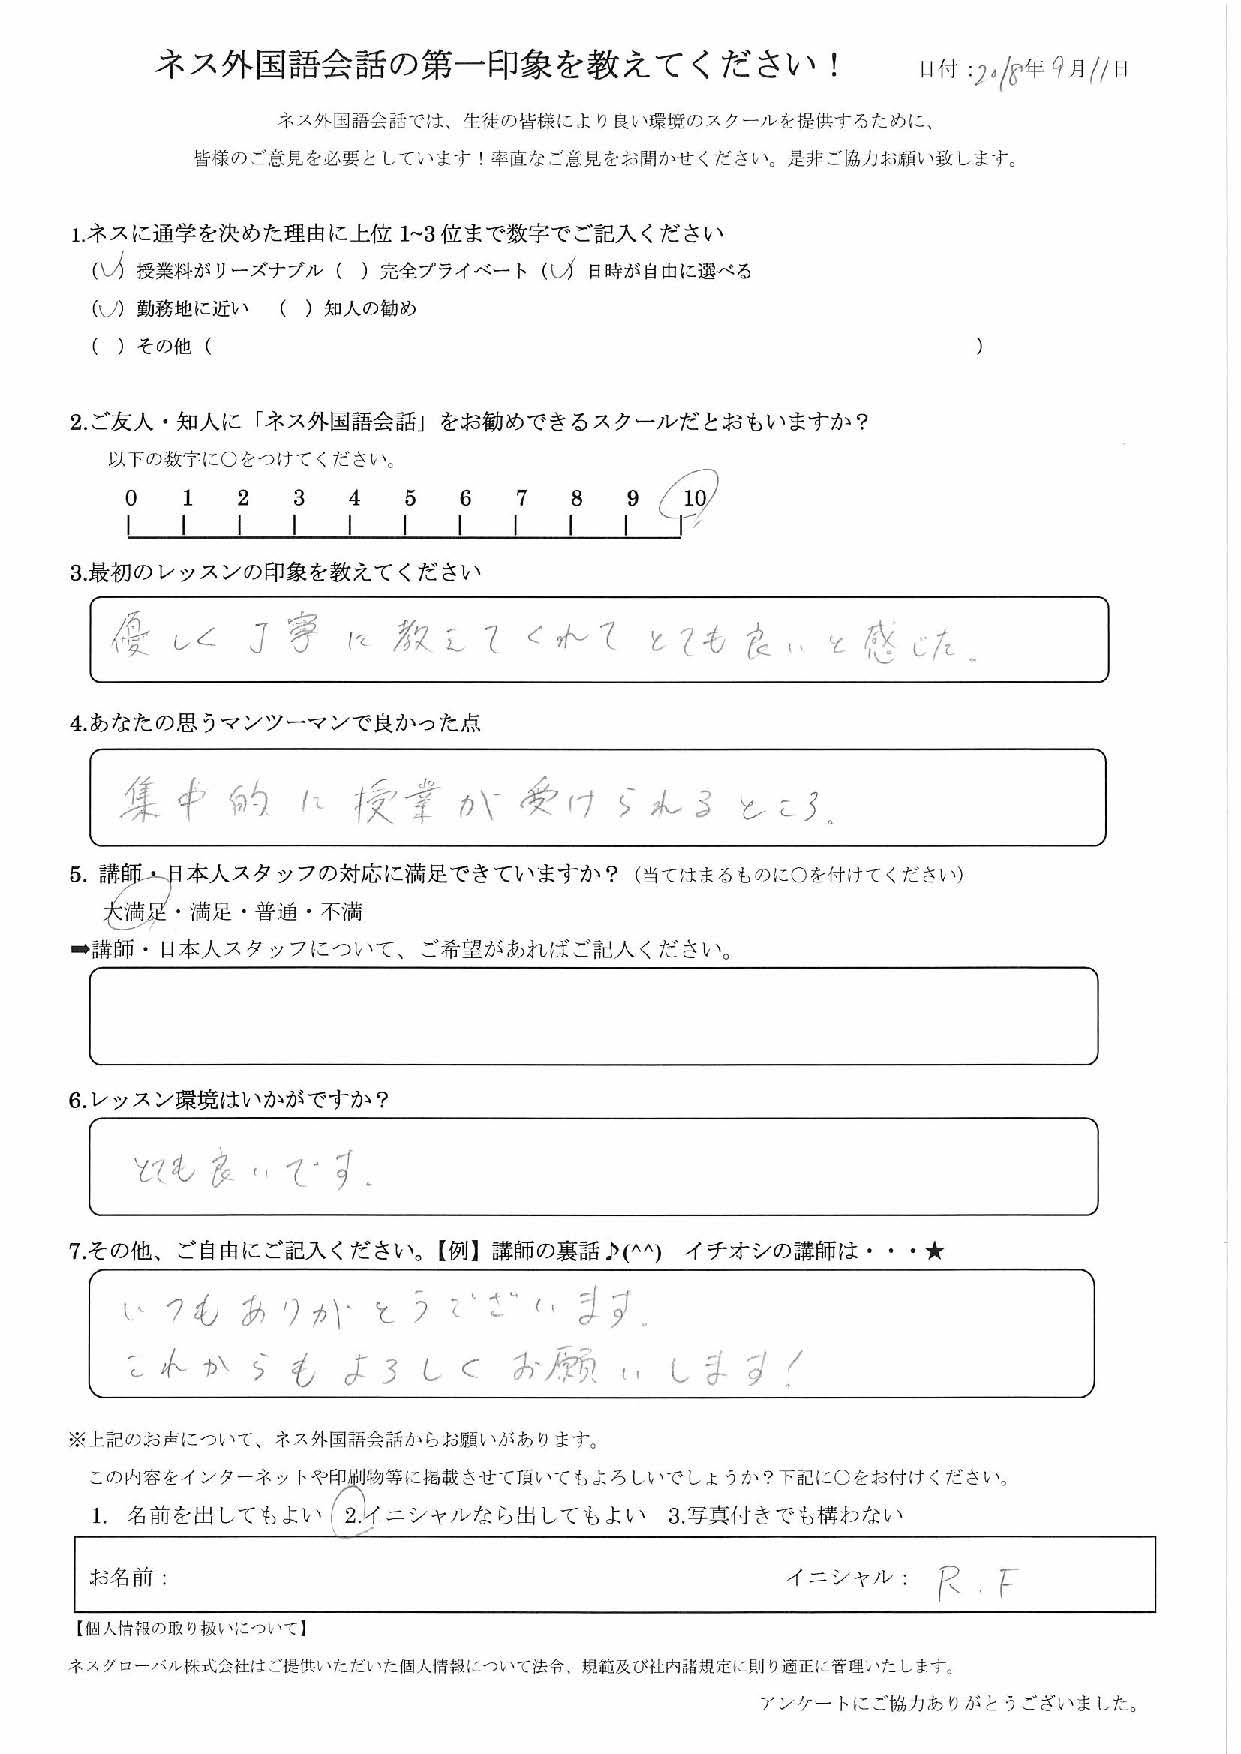 ネス外国語会話の第一印象を教えてください！ 日付：2018年9月11日
ネス外国語会話では、生徒の皆様により良い環境のスクールを提供するために、
皆様のご意見を必要としています！率直なご意見をお聞かせください。是非ご協力お願い致します。
1.ネスに通学を決めた理由に上位 1~3 位まで数字でご記入ください
（✓）授業料がリーズナブル（ ）完全プライベート（✓）日時が自由に選べる
（✓）勤務地に近い （ ）知人の勧め
（ ）その他（ ）
2.ご友人・知人に「ネス外国語会話」をお勧めできるスクールだとおもいますか？
以下の数字に○をつけてください。
0 1 2 3 4 5 6 7 8 9 10
3.最初のレッスンの印象を教えてください
優しく丁寧に教えてくれてとても良いと感じた。
4.あなたの思うマンツーマンで良かった点
集中的に授業が受けられるところ。
5. 講師・日本人スタッフの対応に満足できていますか？（当てはまるものに○を付けてください）
大満足・満足・普通・不満
➡講師・日本人スタッフについて、ご希望があればご記入ください。
6.レッスン環境はいかがですか？
とても良いです。
7.その他、ご自由にご記入ください。【例】講師の裏話♪(^^) イチオシの講師は・・・★
いつもありがとうございます。
これからもよろしくお願いします！
※上記のお声について、ネス外国語会話からお願いがあります。
この内容をインターネットや印刷物等に掲載させて頂いてもよろしいでしょうか？下記に○をお付けください。
1. 名前を出してもよい 2.イニシャルなら出してもよい 3.写真付きでも構わない
お名前： イニシャル： R.F
【個人情報の取り扱いについて】
ネスグローバル株式会社はご提供いただいた個人情報について法令、規範及び社内諸規定に則り適正に管理いたします。
アンケートにご協力ありがとうございました。